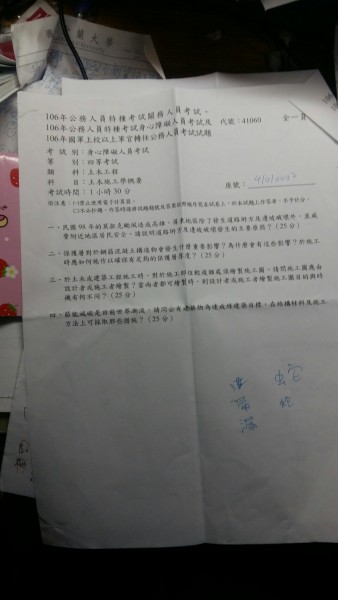 106年公務人員特種考試關務人員考試、
106年公務人員特種考試身心障礙人員考試及 代號:41060 全一頁
106年國軍上校以上軍官轉任公務人員考試試題
考 試 別:身心障礙人員考試
等 別:四等考試
類 科:土木工程
科 目:土木施工學概要
考試時間:1小時30分
座號:
※注意:(一)禁止使用電子計算器。
(二)不必抄題,作答時請將試題題號及答案依照順序寫在試卷上,於本試題上作答者,不予計分。
一、民國98年的莫拉克颱風造成高雄、屏東地區除了發生道路坍方及邊坡破壞外,並威
脅附近地區居民安全。請說明道路坍方及邊坡破壞發生的主要原因?(25分)
二、保護層對於鋼筋混凝土構造物會發生什麼重要影響?為什麼會有這些影響?於施工
時應如何施作以確保有足夠的保護層厚度?(25分)
三、於土木或建築工程施工時,對於施工部位較複雜處須繪製施工圖。請問施工圖應由
設計者或施工者繪製?當兩者都可繪製時,則設計者或施工者繪製施工圖目的與時
機有何不同?(25分)
四、節能減碳是目前世界潮流,請問公有建築物為達成綠建築目標,在結構材料及施工
方法上可採取那些措施?(25分)